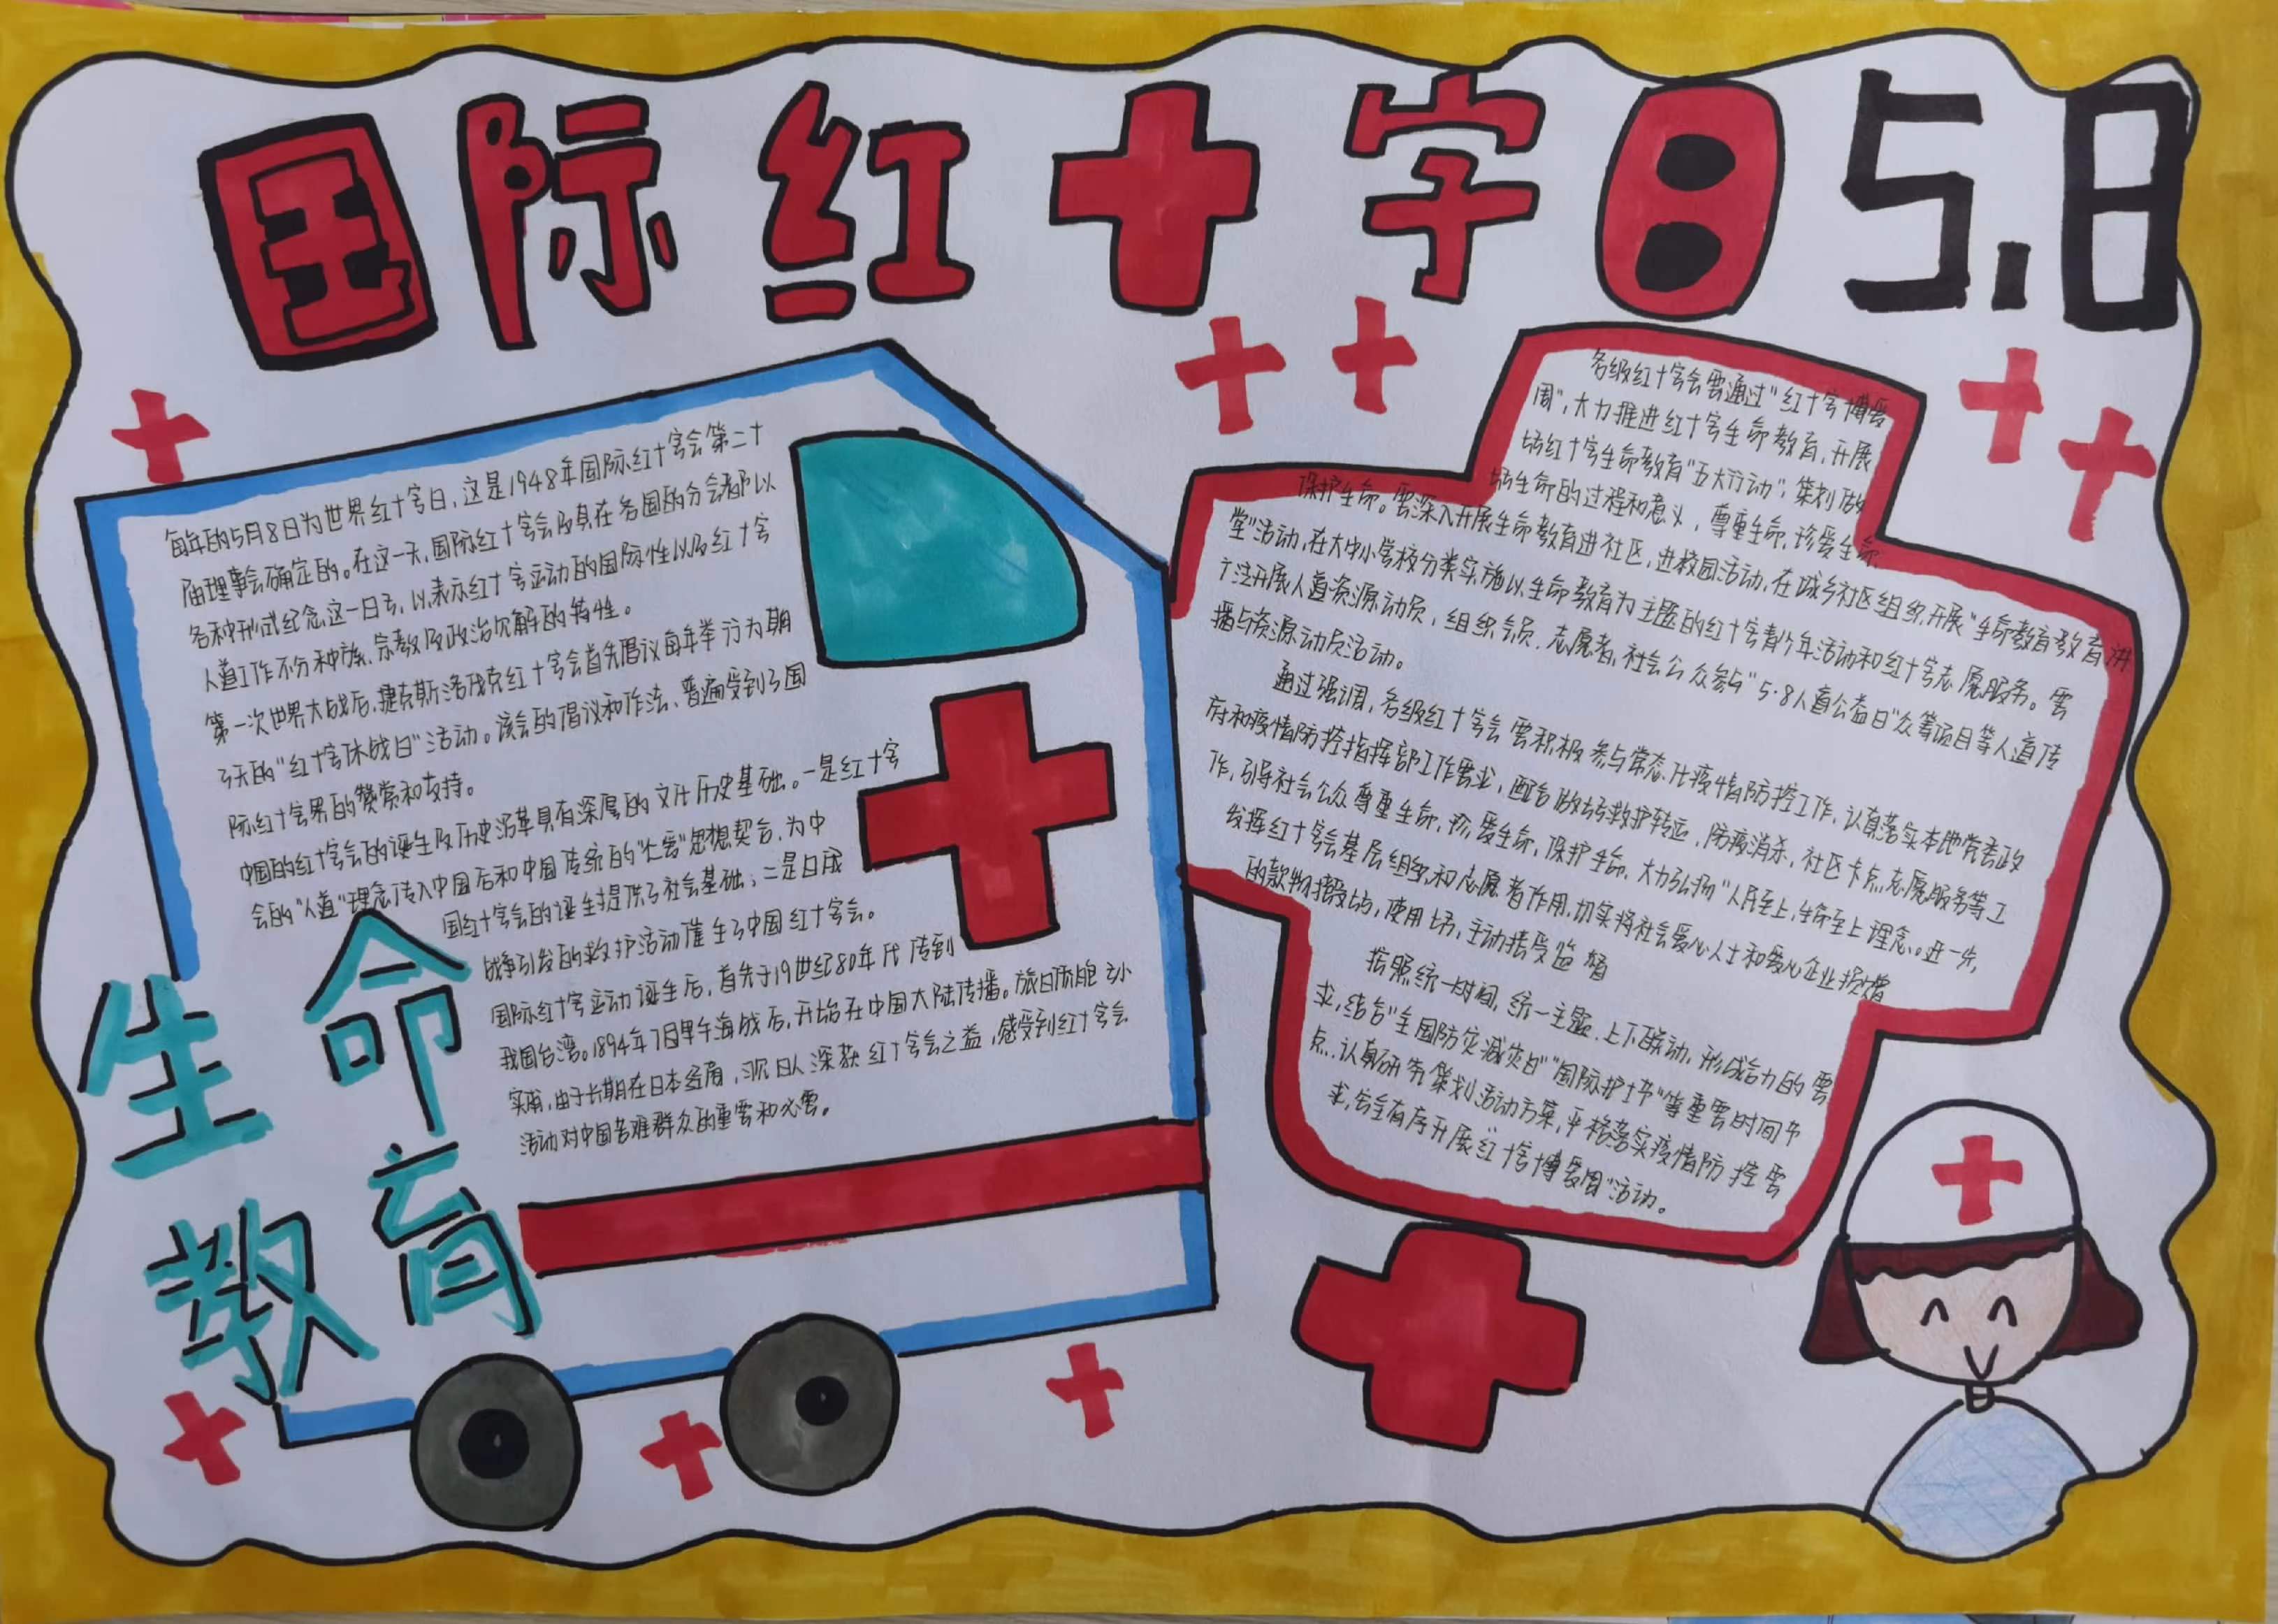 国际红十字日5.8
每年的5月8日为世界红十字日，这是1948年国际红十字会第二十
届理事会确定的。在这一天，国际红十字会及其在各国的分会都以
各种形式纪念这一日子，以表示红十字运动的国际性以及红十字
人道工作不分种族、宗教及政治见解的特性。
第一次世界大战后，捷克斯洛伐克红十字会首先倡议每年举行为期
3天的“红十字休战日”活动。该会的倡议和作法、普遍受到了国
际红十字界的赞赏和支持。
中国的红十字会的诞生及历史沿革具有深厚的文化历史基础。一是红十字
会的“人道”理念传入中国后和中国传统的“仁爱”思想契合，为中
国红十字会的诞生提供了社会基础；二是日俄
战争引发的救护活动催生了中国红十字会。
国际红十字运动诞生后，首先于19世纪80年代传到
我国台湾。1894年7月甲午海战后，开始在中国大陆传播。旅日侨胞孙
实甫，由于长期在日本经商，深获红十字会之益，感受到红十字会
活动对中国苦难群众的重要和必要。
生命
教育
各级红十字会要通过“红十字博爱
周”，大力推进红十字生命教育，开展
好红十字生命教育“五大行动”；策划做
好生命的过程和意义，尊重生命，珍爱生命，
保护生命。要深入开展生命教育进社区，进校园活动，在城乡社区组织开展“生命教育教育讲
堂”活动，在大中小学校分类实施以生命教育为主题的红十字青少年活动和红十字志愿服务。要
广泛开展人道资源动员，组织会员、志愿者，社会公众参与“5·8人道公益日”众筹项目等人道传
播与资源动员活动。
通过强调，各级红十字会要积极参与常态化疫情防控工作，认真落实本地党委政
府和疫情防控指挥部工作要求，配合做好救护转运，防疫消杀，社区卡点，志愿服务等工
作，引导社会公众尊重生命，珍爱生命，保护生命，大力弘扬“人民至上，生命至上理念。进一步，
发挥红十字会基层组织和志愿者作用，切实将社会爱心人士和爱心企业捐赠
的款物接收好，使用好，主动接受监督
按照统一时间，统一主题，上下联动，形成合力的要
求，结合“全国防灾减灾日”“国际护士节”等重要时间节
点，认真研究策划活动方案，严格落实疫情防控要
求，安全有序开展“红十字博爱周”活动。